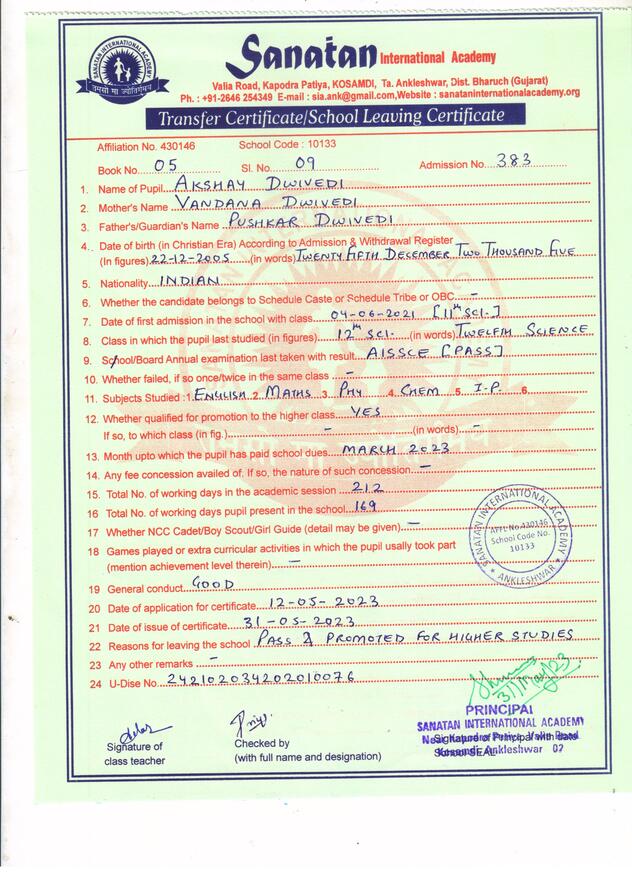 SANATAN INTERNATIONAL ACADEMY
तमसो मा ज्योतिर्गमय
Sanatan International Academy
Valia Road, Kapodra Patiya, KOSAMDI, Ta. Ankleshwar, Dist. Bharuch (Gujarat)
Ph. : +91-2646 254349 E-mail : sia.ank@gmail.com,Website : sanataninternationalacademy.org
Transfer Certificate/School Leaving Certificate
Affiliation No. 430146 School Code : 10133
Book No. 05 Sl. No. 09 Admission No. 383
1. Name of Pupil AKSHAY DWIVEDI
2. Mother's Name VANDANA DWIVEDI
3. Father's/Guardian's Name PUSHKAR DWIVEDI
4. Date of birth (in Christian Era) According to Admission & Withdrawal Register
(In figures) 22-12-2005 (in words) TWENTY FIFTH DECEMBER TWO THOUSAND FIVE
5. Nationality INDIAN
6. Whether the candidate belongs to Schedule Caste or Schedule Tribe or OBC. -
7. Date of first admission in the school with class 04-06-2021 [11th SCI.]
8. Class in which the pupil last studied (in figures) 12th SCI. (in words) TWELFTH SCIENCE
9. School/Board Annual examination last taken with result AISSCE [PASS]
10. Whether failed, if so once/twice in the same class -
11. Subjects Studied :1. ENGLISH 2. MATHS 3. PHY 4. CHEM 5. I.P. 6.
12. Whether qualified for promotion to the higher class YES
If so, to which class (in fig.) - (in words) -
13. Month upto which the pupil has paid school dues MARCH 2023
14. Any fee concession availed of. If so, the nature of such concession -
15. Total No. of working days in the academic session 212
16 Total No. of working days pupil present in the school 169
17 Whether NCC Cadet/Boy Scout/Girl Guide (detail may be given) -
18 Games played or extra curricular activities in which the pupil usally took part
(mention achievement level therein) -
SANATAN INTERNATIONAL ACADEMY
AFFI. No.430146
School Code No.
10133
* ANKLESHWAR *
19 General conduct GOOD
20 Date of application for certificate 12-05-2023
21 Date of issue of certificate 31-05-2023
22 Reasons for leaving the school PASS & PROMOTED FOR HIGHER STUDIES
23 Any other remarks -
24 U-Dise No. 242102034202010076
31/May/23
PRINCIPAL
SANATAN INTERNATIONAL ACADEMY
Signature of Principal with date
School SEAL
Near Kapodra Patiya, Valia Road
Kosamdi, Ankleshwar 02
Signature of
class teacher
Checked by
(with full name and designation)